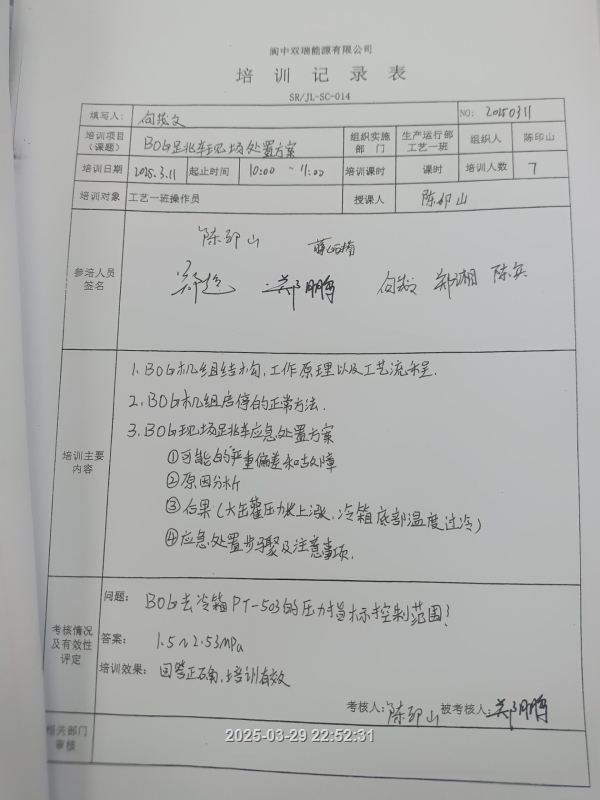 阆中双瑞能源有限公司
培训记录表
SR/JL-SC-014
填写人: NO: 20250311
培训项目(课题) BOG跳车现场处置方案 组织实施部门 生产运行部工艺一班 组织人 陈印山
培训日期 2025.3.11 起止时间 10:00 ~ 11:00 培训课时 课时 培训人数 7
培训对象 工艺一班操作员 授课人 陈印山
参培人员签名 陈印山
郑鹏 郑湘 陈兵
培训主要内容
1. BOG机组结构,工作原理以及工艺流程.
2. BOG机组启停的正常方法.
3. BOG现场跳车应急处置方案
①可能的严重偏差和故障
②原因分析
③后果(大缶罐压力上涨,冷箱底部温度过冷)
④应急处置步骤及注意事项.
考核情况及有效性评定
问题: BOG去冷箱PT-503的压力指标控制范围?
答案: 1.5~2.53MPa
培训效果: 回答正确,培训有效
考核人: 陈印山 被考核人: 郑鹏
相关部门审核
2025-03-29 22:52:31